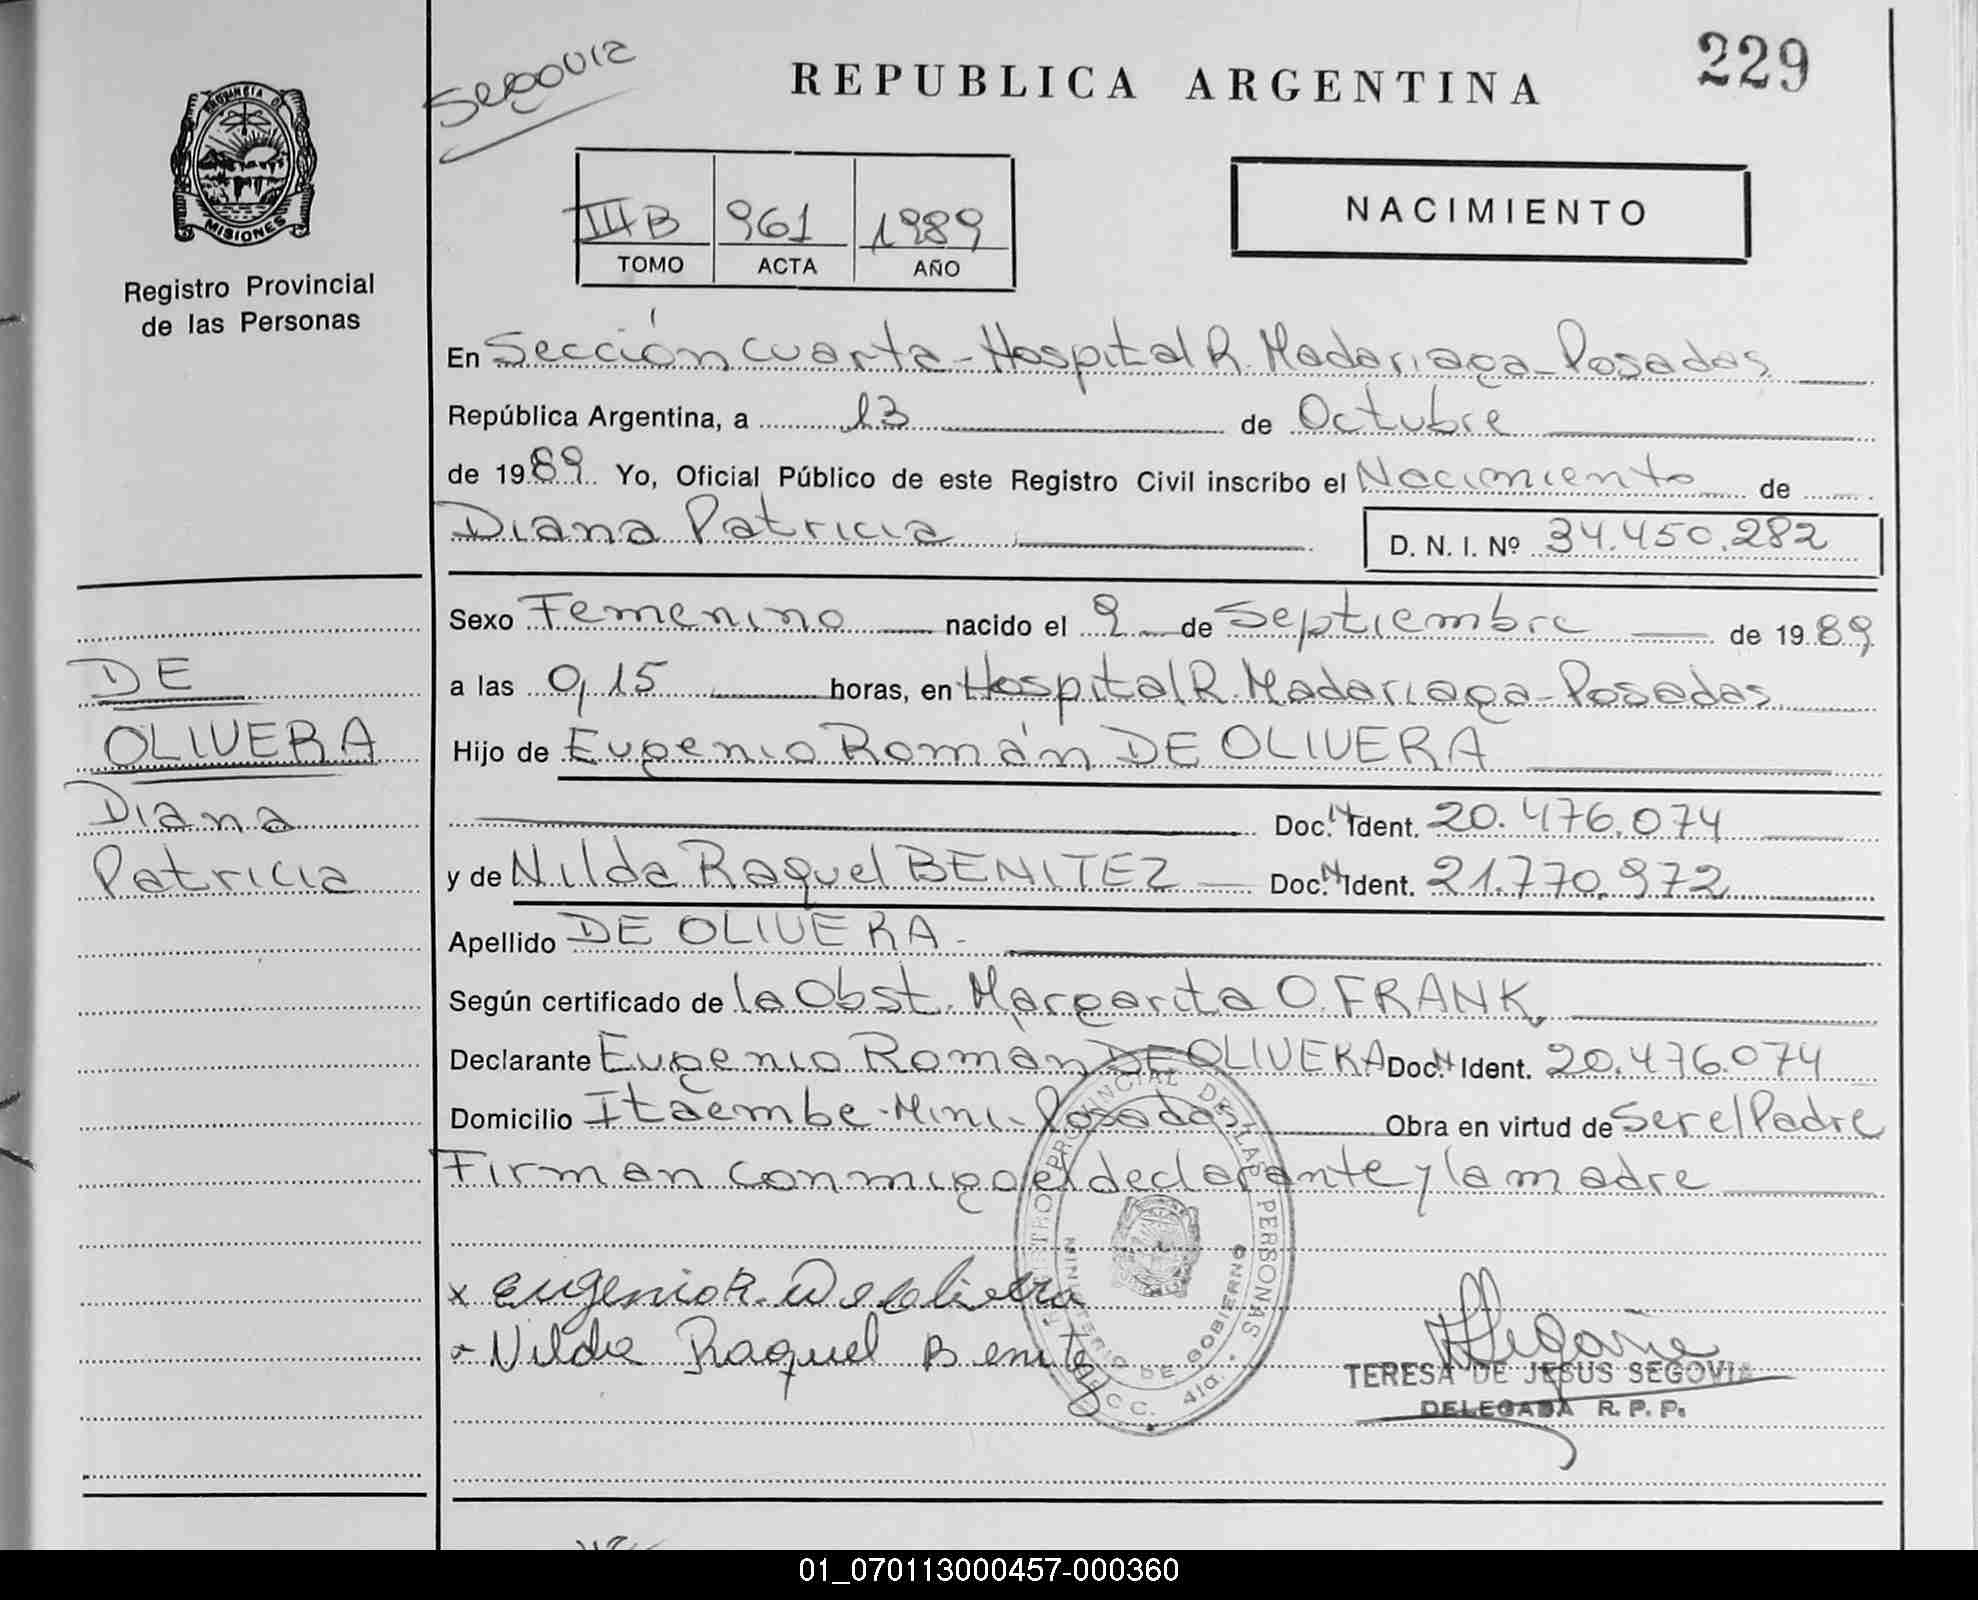 Segovia
REPUBLICA ARGENTINA
229
PROVINCIA DE
MISIONES
Registro Provincial
de las Personas
III B 961 1989
TOMO ACTA AÑO
NACIMIENTO
En Sección Cuarta - Hospital R. Madariaga - Posadas
República Argentina, a 13 de Octubre
de 1989. Yo, Oficial Público de este Registro Civil inscribo el Nacimiento de
Diana Patricia
D. N. I. Nº 34.450.282
Sexo Femenino nacido el 9 de Septiembre de 1989
a las 0,15 horas, en Hospital R. Madariaga - Posadas
Hijo de Eugenio Román DE OLIVERA
Doc. N Ident. 20.476.074
y de Nilda Raquel BENITEZ Doc. N Ident. 21.770.972
Apellido DE OLIVERA.
Según certificado de la Obst. Margarita O. FRANK
Declarante Eugenio Román DE OLIVERA Doc. N Ident. 20.476.074
Domicilio Itaembe - Mini - Posadas Obra en virtud de Ser el Padre
Firman conmigo el declarante y la madre
DE
OLIVERA
Diana
Patricia
x Eugenio R. De Olivera
Nilda Raquel Benitez
REGISTRO PROVINCIAL DE LAS PERSONAS
MINISTERIO DE GOBIERNO
SECC. 4ta.
TERESA DE JESUS SEGOVIA
DELEGADA R. P. P.
01_070113000457-000360